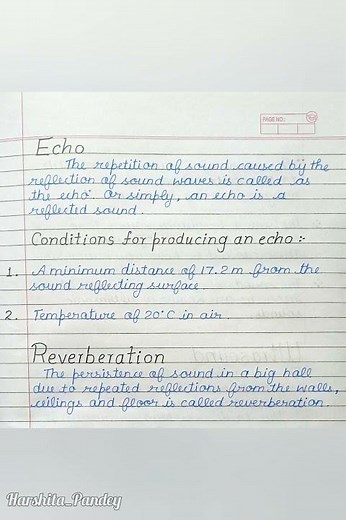 PAGE NO.:
Echo
The repetition of sound caused by the
reflection of sound waves is called as
the echo. Or simply, an echo is a
reflected sound.
Conditions for producing an echo :-
1. A minimum distance of 17.2 m from the
sound reflecting surface.
2. Temperature of 20°C in air.
Reverberation
The persistence of sound in a big hall
due to repeated reflections from the walls,
ceilings and floor is called reverberation.
Harshita_Pandey